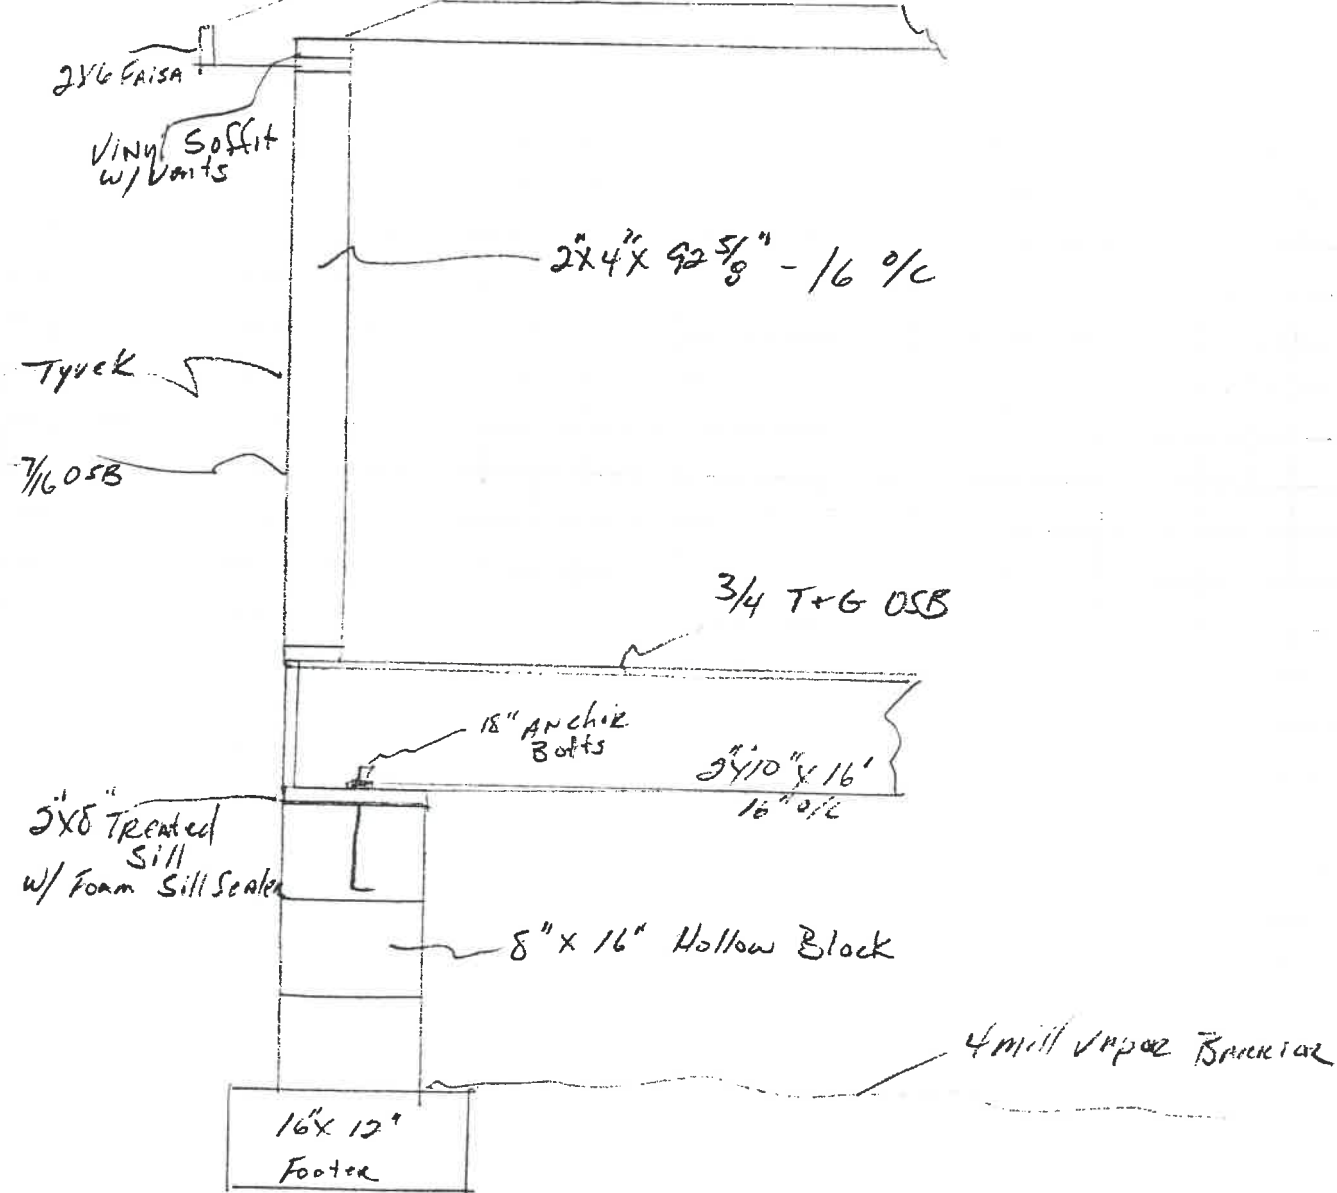 2x6 FAisA
Vinyl Soffit
w/ Vents
2"x4"x 92 5/8" - 16 o/c
Tyvek
7/16 OSB
3/4 T+G OSB
18" Anchor
Bolts
2"x10"x 16'
16" o/c
2"x8" Treated
Sill
w/ Foam Sill Sealer
8" x 16" Hollow Block
4 mill Vapor Barrior
16"x 12"
Footer